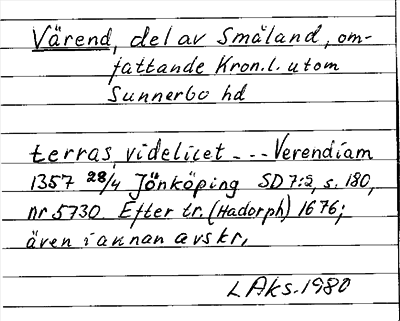 Värend, del av Småland, om-
fattande Kron.l. utom
Sunnerbo hd
terras videlicet - - - Verendiam
1357 28/4 Jönköping SD 7:2, s. 180,
nr 5730. Efter tr. (Hadorph) 1676;
även i annan avskr.
L Aks. 1980